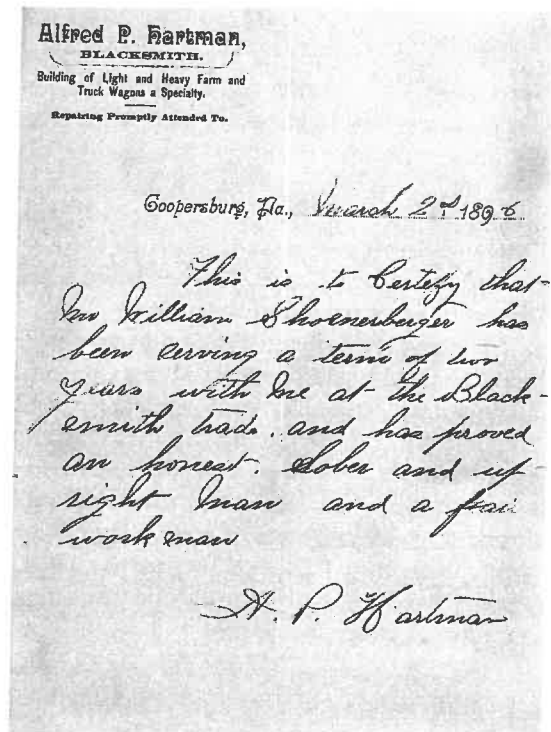 Alfred P. Hartman,
BLACKSMITH.
Building of Light and Heavy Farm and
Truck Wagons a Specialty.
Repairing Promptly Attended To.
Coopersburg, Pa., March 2nd 1896
This is to Certefy that
Mr William Shoenerberger has
been serving a term of two
years with me at the Black-
smith trade. and has proved
an honest. Sober and up
right Man and a fair
work man
A. P. Hartman